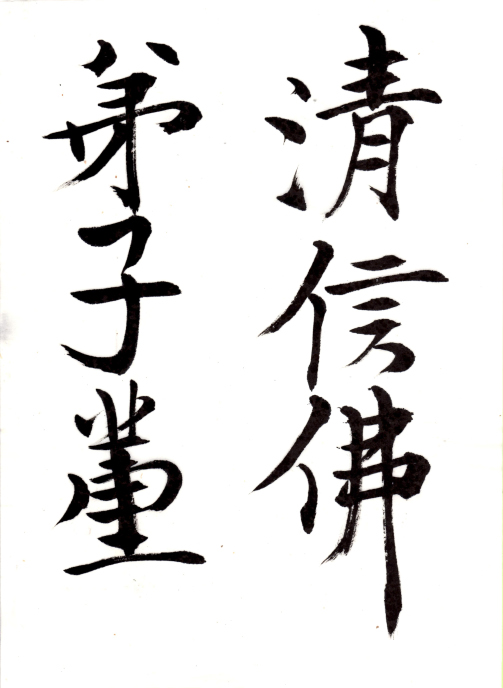 清信佛
弟子